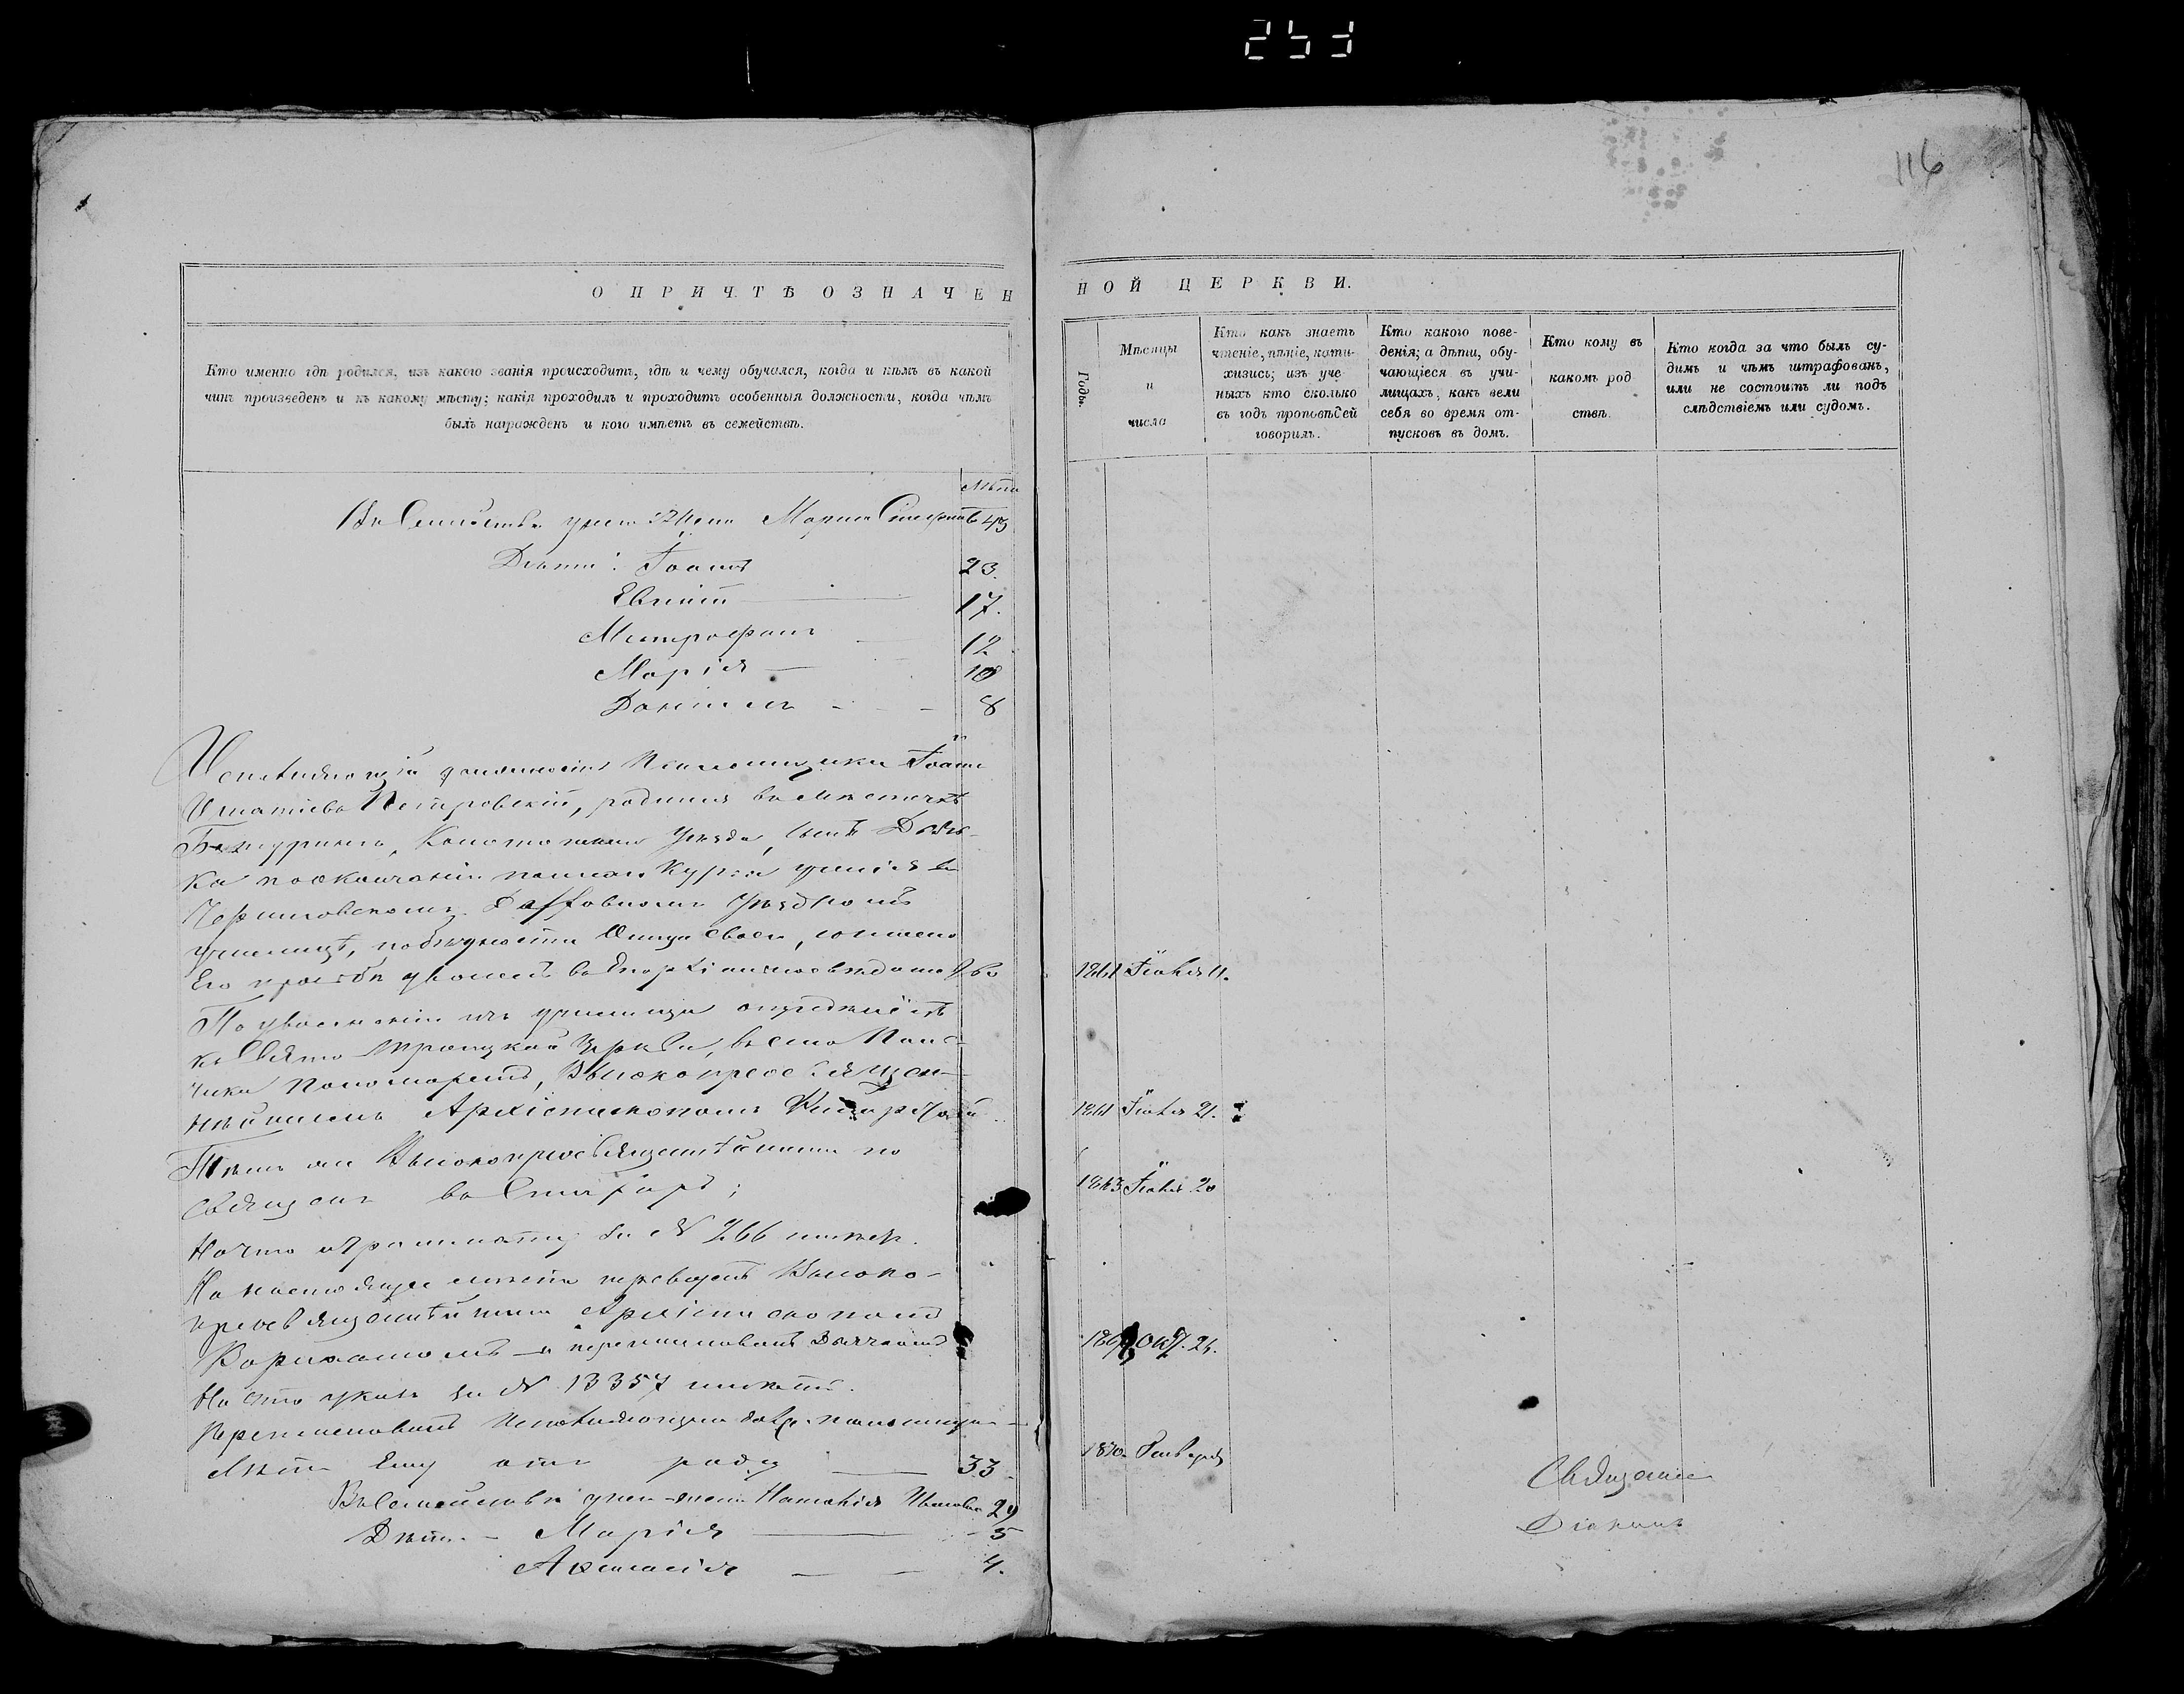 253
116
О ПРИЧТѢ ОЗНАЧЕН
НОЙ ЦЕРКВИ.
Кто именно гдѣ родился, изъ какого званія происходитъ, гдѣ и чему обучался, когда и кѣмъ въ какой
чинъ произведенъ и къ какому мѣсту; какія проходилъ и проходитъ особенныя должности, когда чѣмъ
былъ награжденъ и кого имѣетъ въ семействѣ.
Годы.
Мѣсяцы
и
числа
Кто какъ знаетъ
чтеніе, пѣніе, кати-
хизисъ; изъ уче
ныхъ кто сколько
въ годъ проповѣдей
говорилъ.
Кто какого пове-
денія; а дѣти, обу-
чающіеся въ учи-
лищахъ, какъ вели
себя во время от-
пусковъ въ домъ.
Кто кому въ
какомъ род
ствѣ.
Кто когда за что былъ су-
димъ и чѣмъ штрафованъ,
или не состоитъ ли подъ
слѣдствіемъ или судомъ.
Лѣта
Въ Семействѣ у него Жена Марія 43
Дѣти: Іоаннъ 23.
17.
Митрофанъ 12
Марія 10
Даніилъ 8
Исправляющій должность Псаломщика Іоаннъ
Игнатіевъ Петровскій, родился въ мѣстечкѣ
Батуринѣ, Конотопскаго Уѣзда, сынъ Дьяч-
ка по окончаніи полнаго курса ученія въ
Черниговскомъ Уѣздномъ
училищѣ, по бѣдности Отца своего, согласно
Его просьбѣ уволенъ въ Епархіальное вѣдомство 1861 Іюля 11.
По увольненіи изъ училища опредѣленъ
къ Свято Троицкой Церкви, въ село
Пономаремъ, Высокопреосвящен-
нѣйшимъ Архіепископомъ 1861 Іюля 21.
Тѣмъ же Высокопреосвященнѣйшимъ по
священъ въ Стихарь; 1863 Іюля 20
На что и грамматту за № 266 имѣетъ.
На настоящее мѣсто переведенъ Высоко-
преосвященнѣйшимъ Архіепископомъ
Варлаамомъ и переименованъ Дьячкомъ Окт. 24.
На что указъ за № 13357 имѣетъ.
Переименованъ Исправляющимъ долж. псаломщика 1870 Января
Лѣтъ Ему отъ роду 33
Въ семействѣ у него жена Наталія 29
Дѣти - Марія 5
4.
Священникъ
Діаконъ